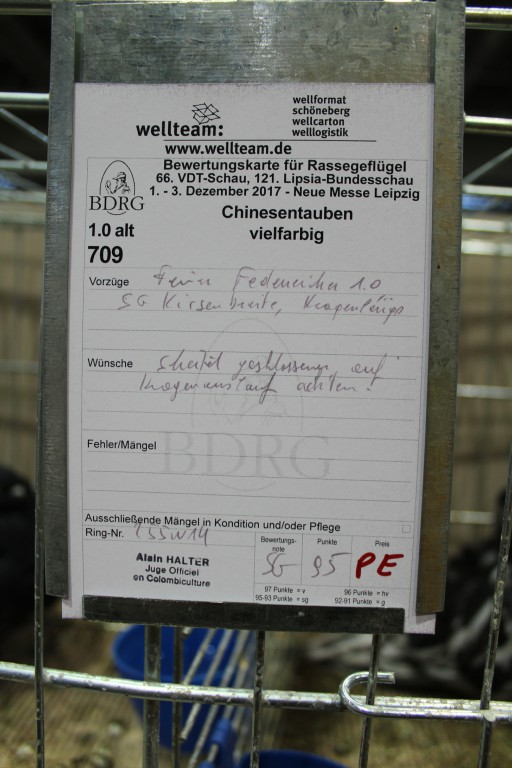 wellteam:
wellformat
schöneberg
wellcarton
welllogistik
www.wellteam.de
Bewertungskarte für Rassegeflügel
66. VDT-Schau, 121. Lipsia-Bundesschau
1. - 3. Dezember 2017 - Neue Messe Leipzig
BDRG
Chinesentauben
vielfarbig
1.0 alt
709
Vorzüge 1.0
SG Kissenbreite, Kragenlänge
Wünsche auf
achten!
Fehler/Mängel
BDRG
Ausschließende Mängel in Kondition und/oder Pflege
Ring-Nr.
Alain HALTER
Juge Officiel
en Colombiculture
Bewertungs-
note
SG
Punkte
95
Preis
PE
97 Punkte = v 96 Punkte = hv
95-93 Punkte = sg 92-91 Punkte = g